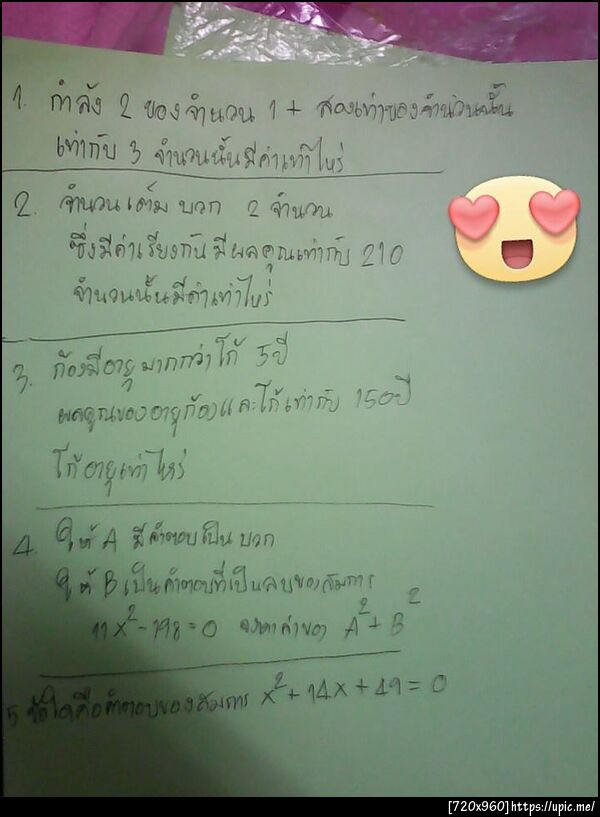 1. กำลัง 2 ของจำนวน 1 + สองเท่าของจำนวนนั้น
เท่ากับ 3 จำนวนนั้นมีค่าเท่าไหร่
2. จำนวนเต็มบวก 2 จำนวน
ซึ่งมีค่าเรียงกันมีผลคูณเท่ากับ 210
จำนวนนั้นมีค่าเท่าไหร่
3. ก้องมีอายุมากกว่าโก้ 5 ปี
ผลคูณของอายุก้องและโก้เท่ากับ 150 ปี
โก้อายุเท่าไหร่
4. ให้ A มีคำตอบเป็นบวก
ให้ B เป็นคำตอบที่เป็นลบของสมการ
11x² - 198 = 0 จงหาค่าของ A² + B²
5 ข้อใดคือคำตอบของสมการ x² + 14x + 49 = 0
[720x960]https://upic.me/